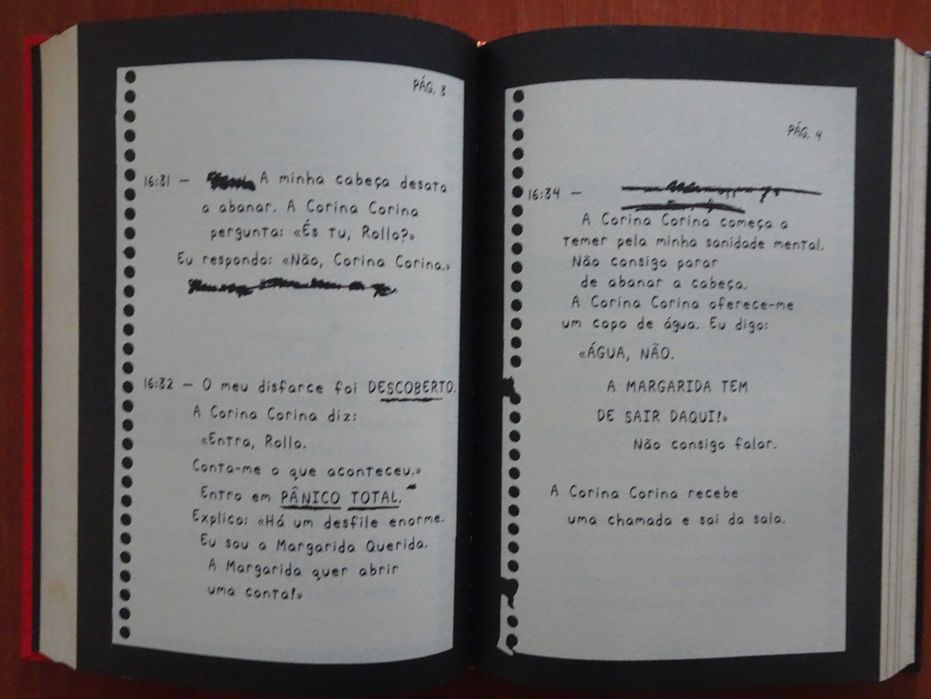 PÁG. 3
16:31 — A minha cabeça desata
a abanar. A Corina Corina
pergunta: «És tu, Rollo?»
Eu respondo: «Não, Corina Corina.»
16:32 — O meu disfarce foi DESCOBERTO.
A Corina Corina diz:
«Entra, Rollo.
Conta-me o que aconteceu.»
Entro em PÂNICO TOTAL.
Explico: «Há um desfile enorme.
Eu sou a Margarida Querida.
A Margarida quer abrir
uma conta!»
PÁG. 4
16:34 —
A Corina Corina começa a
temer pela minha sanidade mental.
Não consigo parar
de abanar a cabeça.
A Corina Corina oferece-me
um copo de água. Eu digo:
«ÁGUA, NÃO.
A MARGARIDA TEM
DE SAIR DAQUI!»
Não consigo falar.
A Corina Corina recebe
uma chamada e sai da sala.